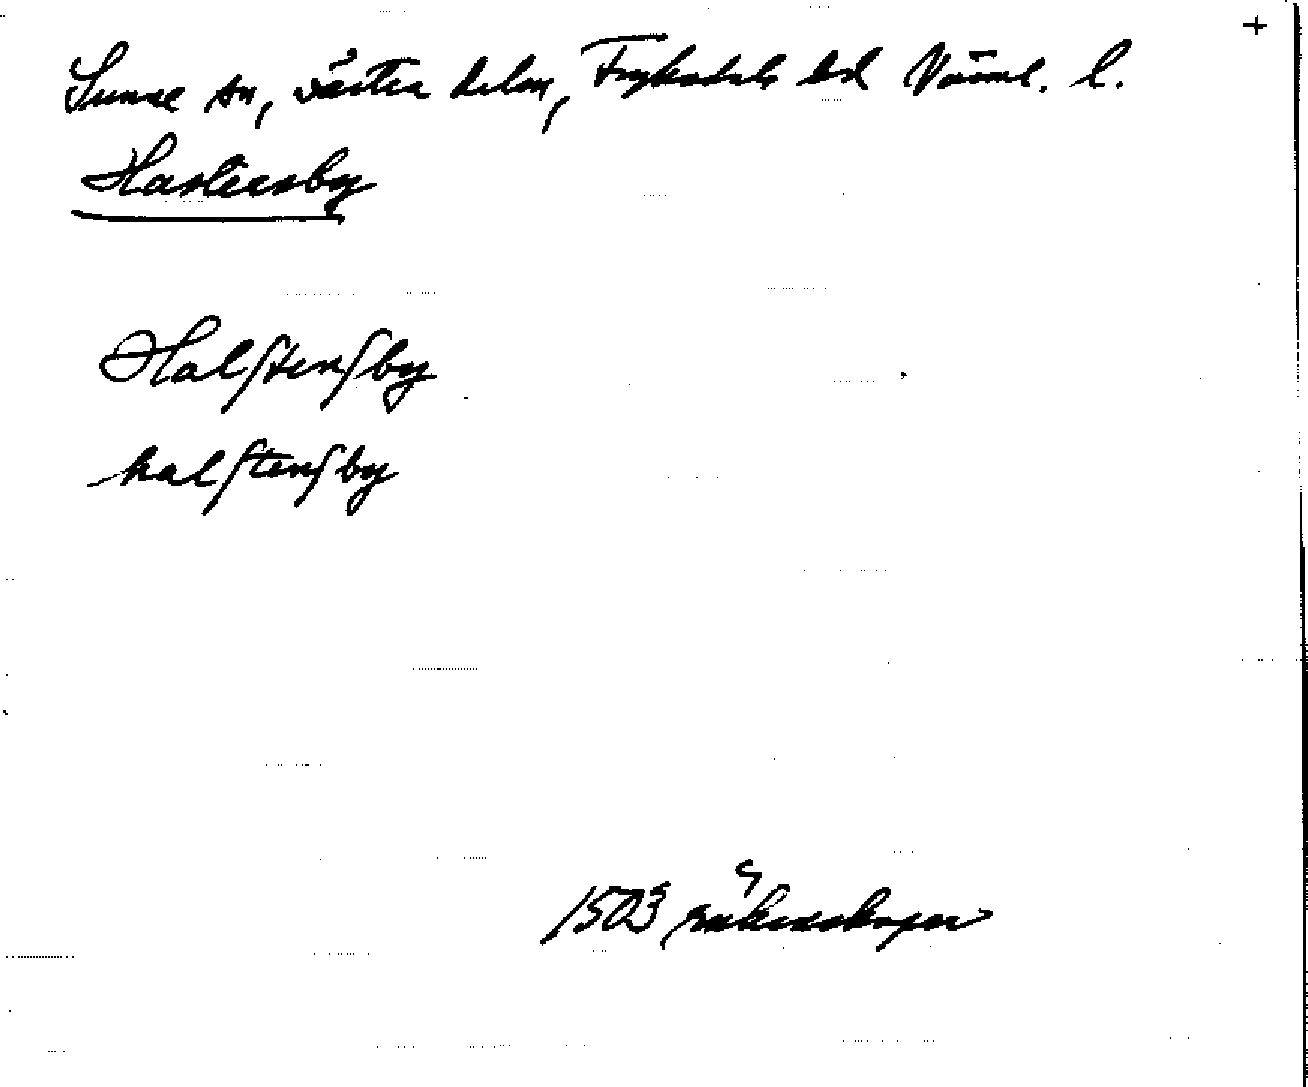 +
Sunne sn, västra delen, Fryksdals hd Värml. l.
Hastensby
Halſtenſby
halſtenſby
1503 räkenskaper